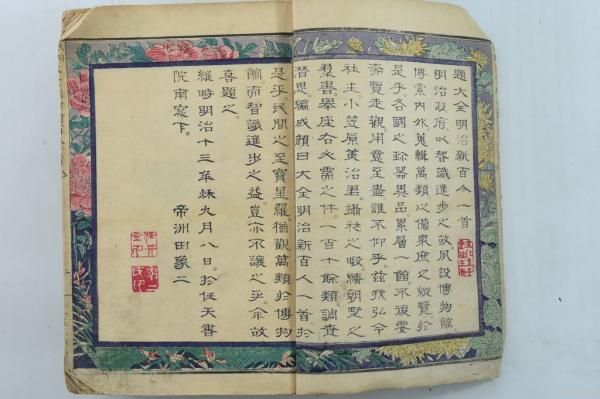 題大全明治新百人一首
明治政府以智識進步之故夙設博物館
博索内外蒐輯萬類以備衆庶之縱覽於
是乎各國之珍器異品累層一館不復要
奔覽走觀用意至盡誰不仰乎茲我弘令
社主小笠原美治君攝裝之暇繙朝野之
羣書舉座右必需之件一百十餘類調查
潜思編成顏曰大全明治新百人一首於
是乎民間之至寶星羅猶觀萬類於博物
館而智識進步之益豈亦不讓之乎余故
喜題之
維時明治十三年秋九月八日於任天書
院南窓下
帝洲田象二